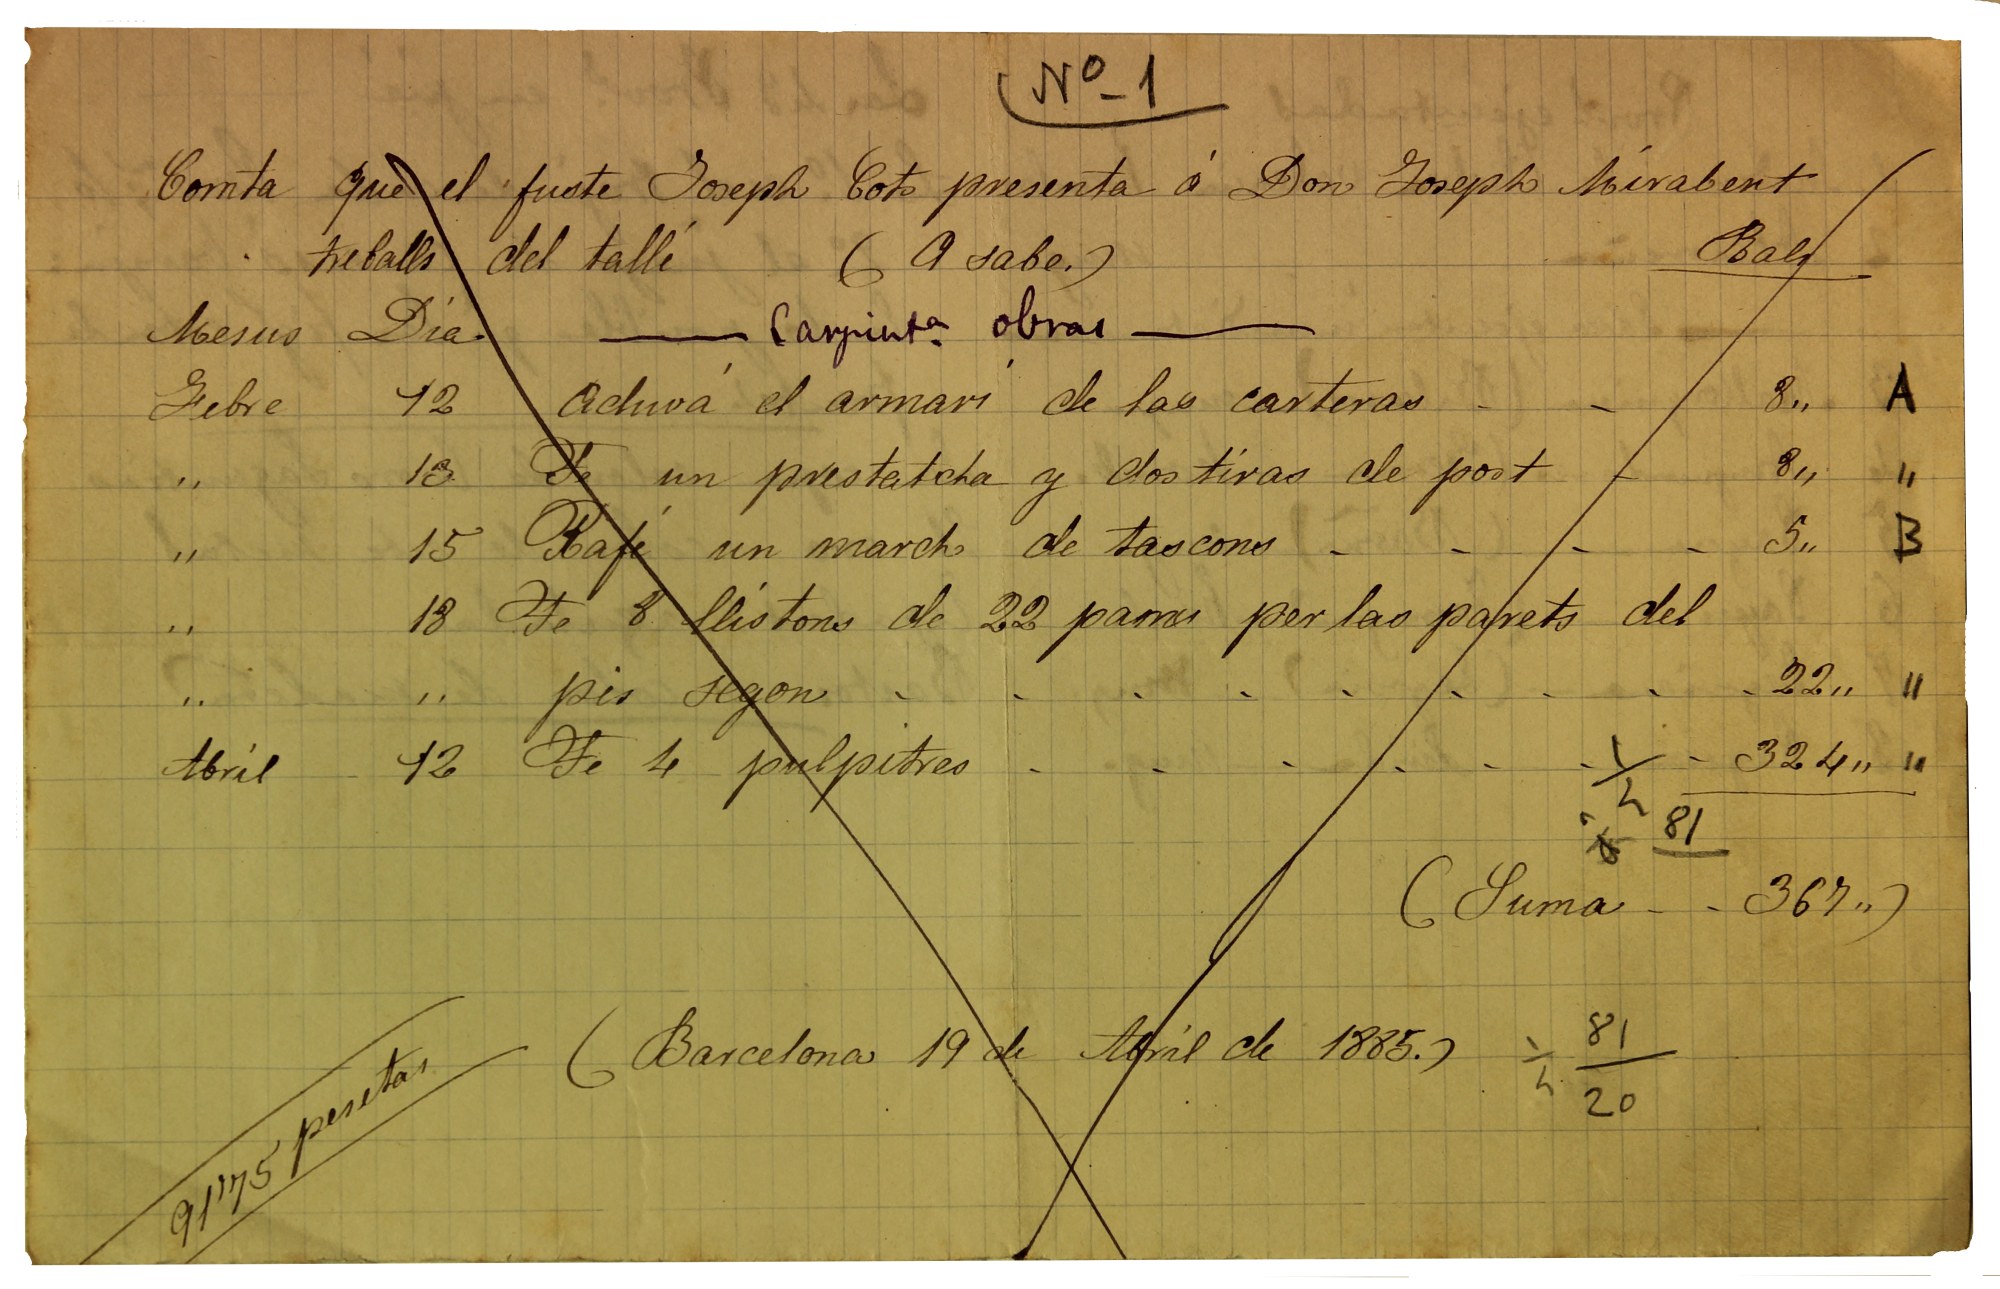 Nº-1
Comta que el fuste Joseph Cots presenta á Don Joseph Mirabent
treballs del tallé ( A sabe.)
Rals
Mesus Dia
Carpintª obras
Febre 12 Aduvá el armari de las carteras - - 8,, A
,, 13 Fe un prestatcha y dos tiras de post - 8,, "
,, 15 Rafé un march de tascons - - - - 5,, B
,, 18 Fe 8 llistons de 22 pams per las parets del
,, ,, pis segon - - - - - - - - - 22,, "
Abril 12 Fe 4 pulpitres - - - - - - - 324,, "
81
(Suma - - 367,,)
(Barcelona 19 de Abril de 1885.)
81
20
91'75 pesetas